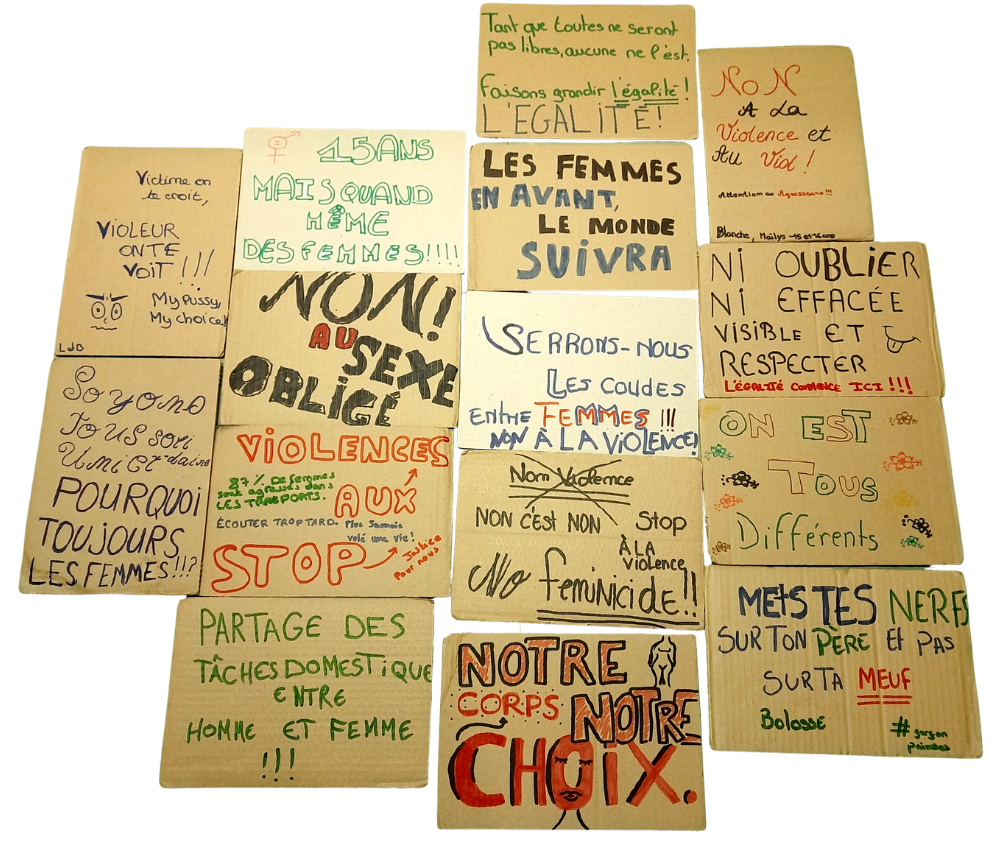 Tant que toutes ne seront
pas libres, aucune ne l'est.
Faisons grandir l'égalité !
L'EGALITÉ!
NON
A La
Violence et
Au Viol !
Attention au Agresseurs!!!
Blanche, Maïlys -15 et 16 ans
15ANS
MAIS QUAND
MÊME
DES FEMMES!!!!
LES FEMMES
EN AVANT,
LE MONDE
SUIVRA
Victime on
te croit,
VIOLEUR
ON TE
VOIT !!!
My Pussy,
My choice!
LJB
NON!
AU
SEXE
OBLIGÉ
SERRONS-NOUS
LES COUDES
ENTRE FEMMES !!!
NON À LA VIOLENCE!
NI OUBLIER
NI EFFACÉE
VISIBLE ET
RESPECTER
L'ÉGALITÉ COMMENCE ICI !!!
Soyons
Tous soli
POURQUOI
TOUJOURS
LES FEMMES!!!?
VIOLENCES
87% De femmes
sont agressées dans
LES TRANSPORTS.
AUX
ÉCOUTER TROP TARD. Plus Jamais
volé une vie!
STOP
Justice
Pour nous
Non Violence
NON C'EST NON Stop
À LA
Violence
No feminicide!!
ON EST
TOUS
Différents
PARTAGE DES
TÂCHES DOMESTIQUE
ENTRE
HOMME ET FEMME
!!!
NOTRE
CORPS NOTRE
CHOIX.
METS TES NERFS
SUR TON PÈRE ET PAS
SUR TA MEUF
Bolosse
#